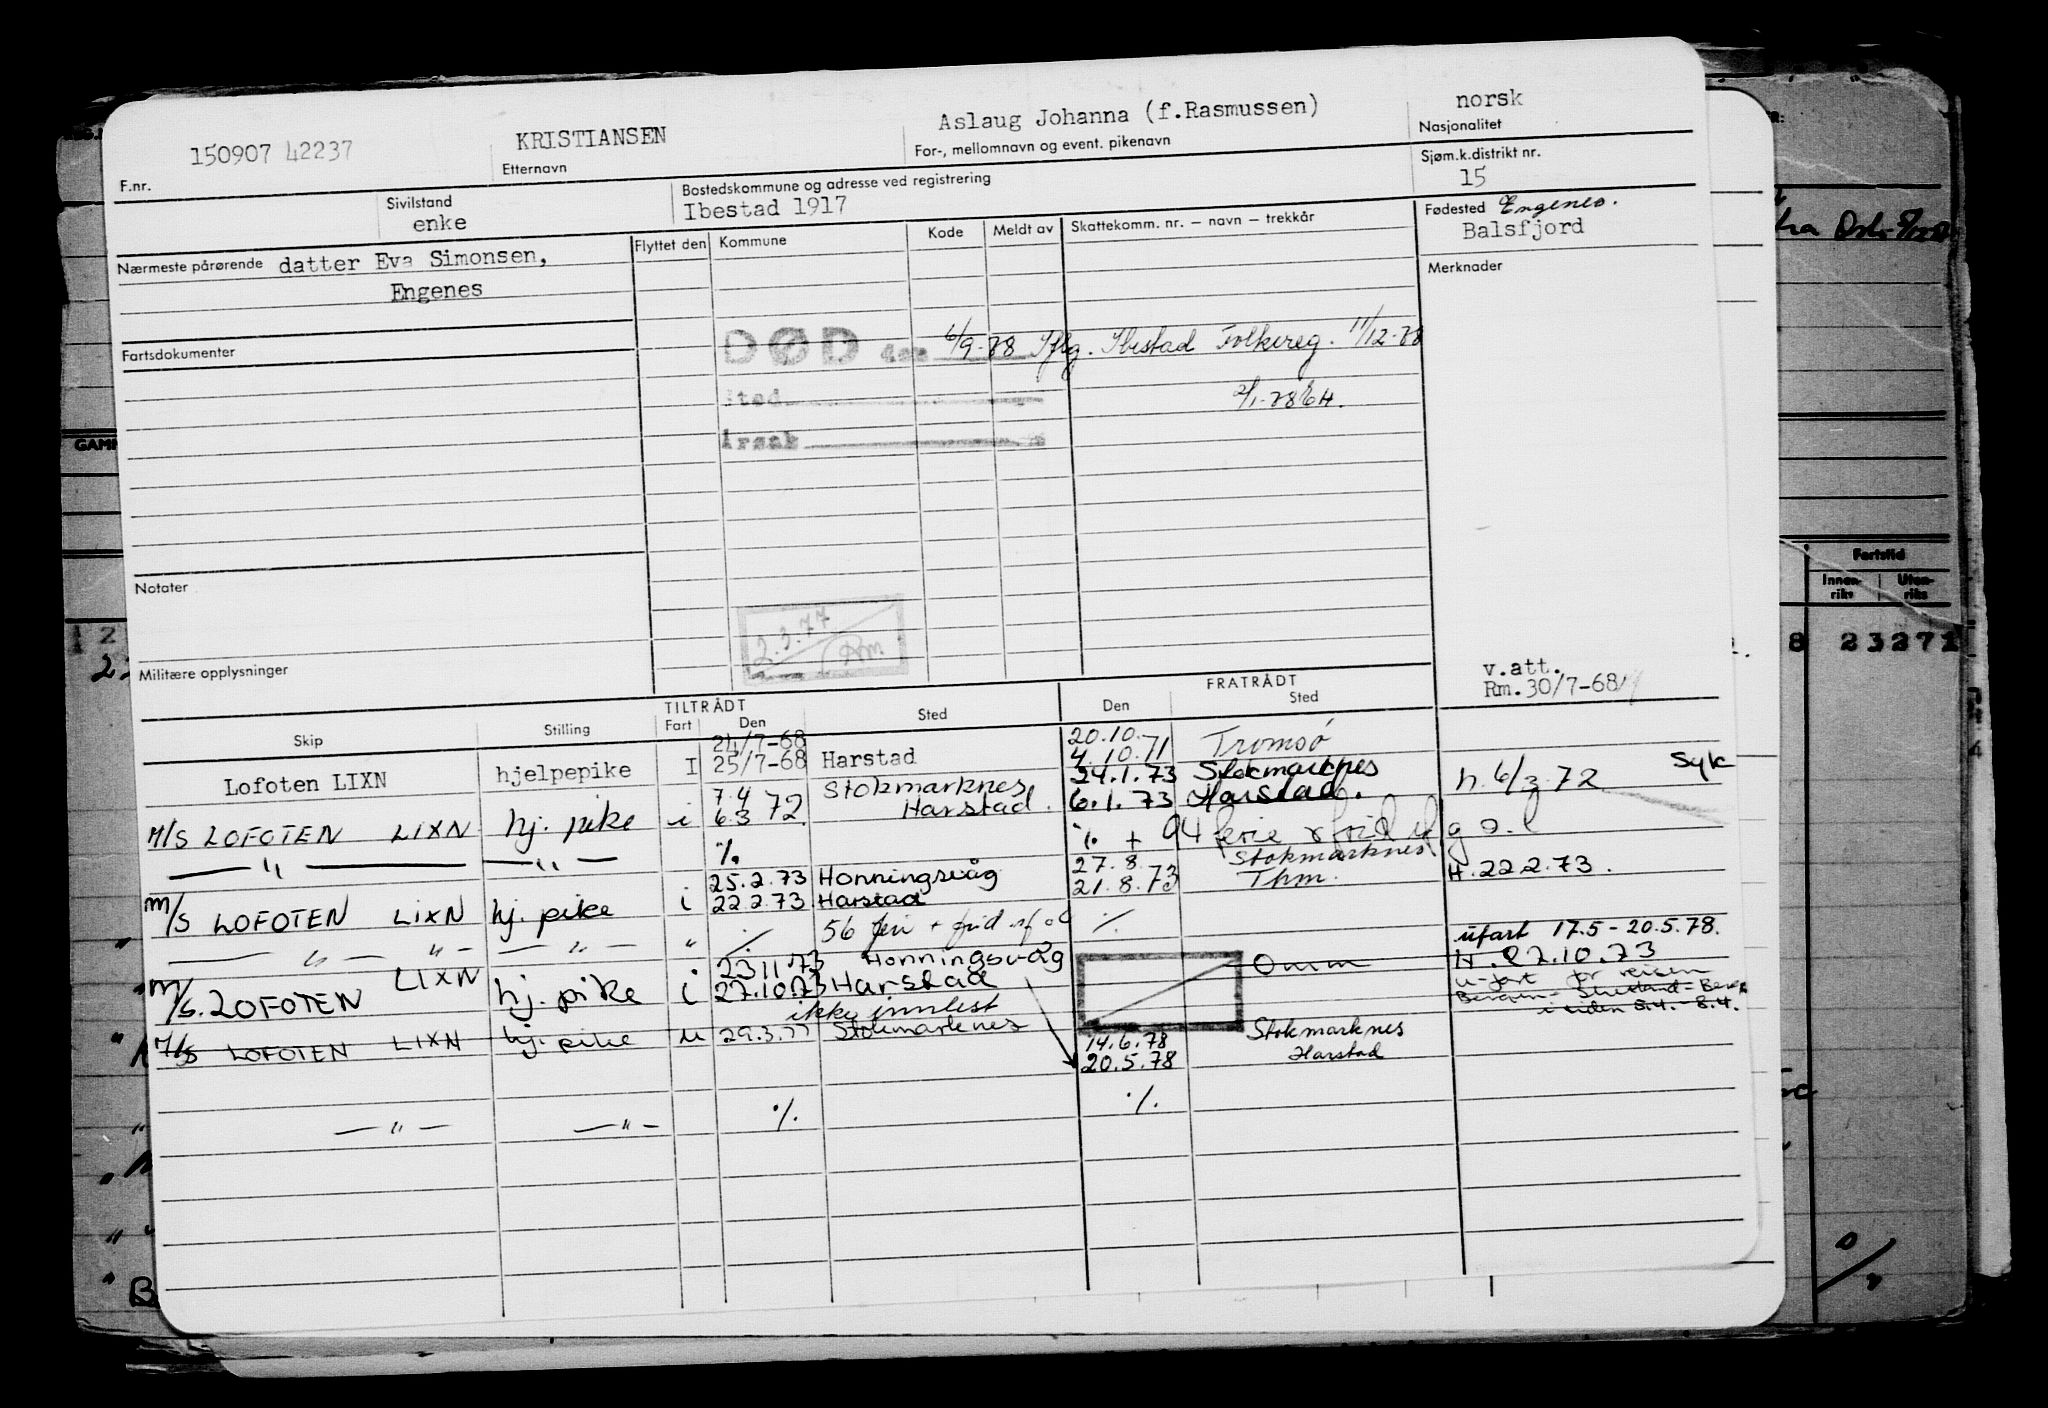 150907 42237
F.nr.
KRISTIANSEN
Etternavn
Aslaug Johanna (f.Rasmussen)
For-, mellomnavn og event. pikenavn
norsk
Nasjonalitet
Sivilstand
enke
Bostedskommune og adresse ved registrering
Ibestad 1917
Sjøm.k.distrikt nr.
15
Nærmeste pårørende datter Eva Simonsen,
Engenes
Flyttet den
Kommune
Kode
Meldt av
Skattekomm. nr. — navn — trekkår
Fødested Engenes.
Balsfjord
Merknader
Fartsdokumenter
DØD den 6/9-78 Iflg. Ibestad Folkereg. 11/12-78
Sted
Årsak
Notater
2.3.77
Rm.
Militære opplysninger
v.att.
Rm.30/7-68
TILTRÅDT
FRATRÅDT
Skip
Stilling
Fart
Den
Sted
Den
Sted
24/7-68
20.10.
Lofoten LIXN hjelpepike I 25/7-68 Harstad 4.10.71 Tromsø
7.4 Stokmarknes 24.1.73 Stokmarknes
M/S LOFOTEN LIXN hj. pike i 6.3 72 Harstad. 6.1.73 Harstad. h. 6/3.72 Syk
— " — — " — ·/. ·/. + 94 ferie
25.2.73 Honningsvåg 27.8 Stokmarknes
M/S LOFOTEN LIXN hj. pike i 22.2.73 Harstad 21.8.73 H.22.2.73.
— " — " — — " — " ·/. 56 ·/.
ufart 17.5-20.5.78.
23.11.73 Honningsvåg Omm H.27.10.73
M/S. LOFOTEN LIXN hj. pike i 27.10.73 Harstad
u-fart for reisen
ikke innlest
M/S LOFOTEN LIXN hj. pike u 29.3.77 Stokmarknes 14.6.78 Stokmarknes
i tiden 5.4.-8.4.
20.5.78 Harstad
— " — — " — ·/. ·/.
Fartstid
Innen-
riks
Uten-
riks
8 23271